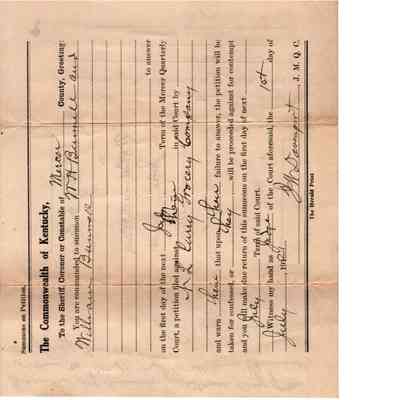 Summons on Petition.
The Commonwealth of Kentucky,
To the Sheriff, Coroner or Constable of Mercer County, Greeting:
You are commanded to summon W H Bunnell and
William Bunnell
to answer
on the first day of the next July Term of the Mercer Quarterly
Court, a petition filed against them in said Court by
Curry Grocery Company
and warn them that upon their failure to answer, the petition will be
taken for confessed, or they will be proceeded against for contempt
and you will make due return of this summons on the first day of next
July Term of said Court.
Witness my hand as Judge of the Court aforesaid, the 1st day of
July 192
Davenport J. M. Q. C.
The Herald Print